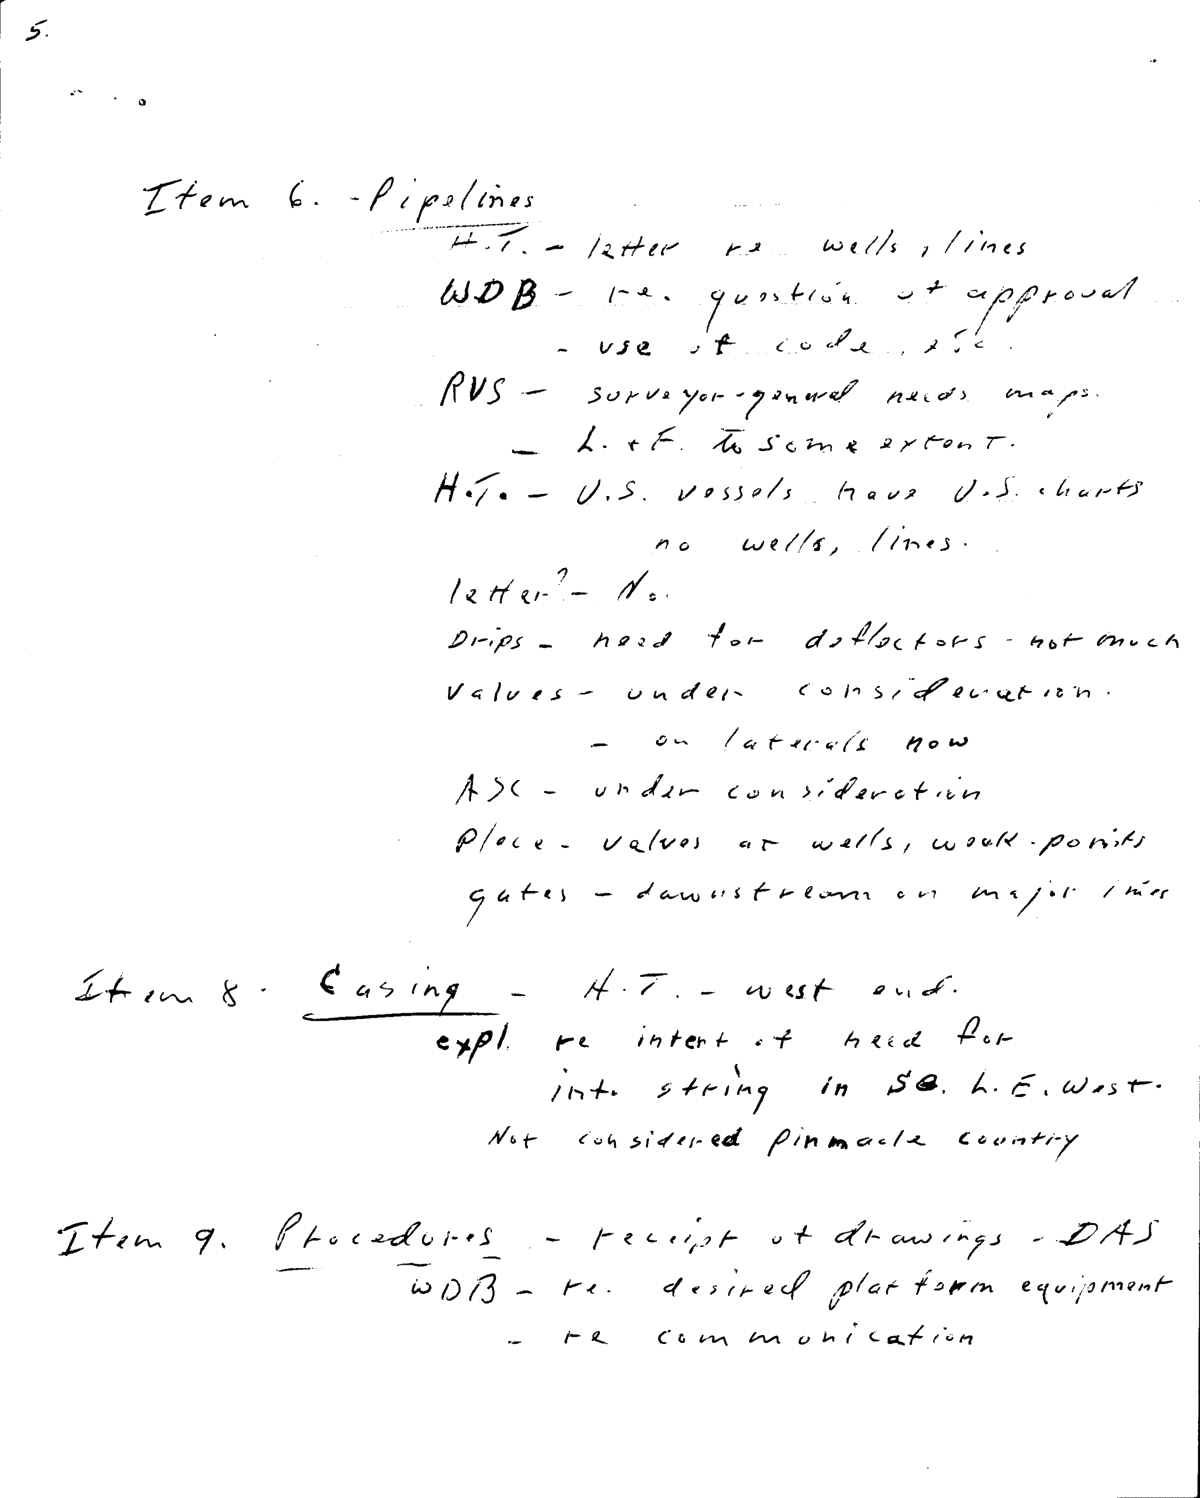 5.
Item 6. - Pipelines
H.T. - letter re wells, lines
WDB - re. question of approval
- use of code, etc.
RVS - surveyor-general needs maps.
- L. + F. to some extent.
H.T. - U.S. vessels have U.S. charts
no wells, lines.
letter? - No.
Drips - need for deflectors - not much
Valves - under consideration.
- on laterals now
ASC - under consideration
Place - valves at wells, weak points
gates - downstream on major lines
Item 8. Casing - H.T. - west end.
expl. re intent of need for
int. string in SE. L.E. West.
Not considered pinnacle country
Item 9. Procedures - receipt of drawings - DAS
WDB - re. desired platform equipment
- re communication